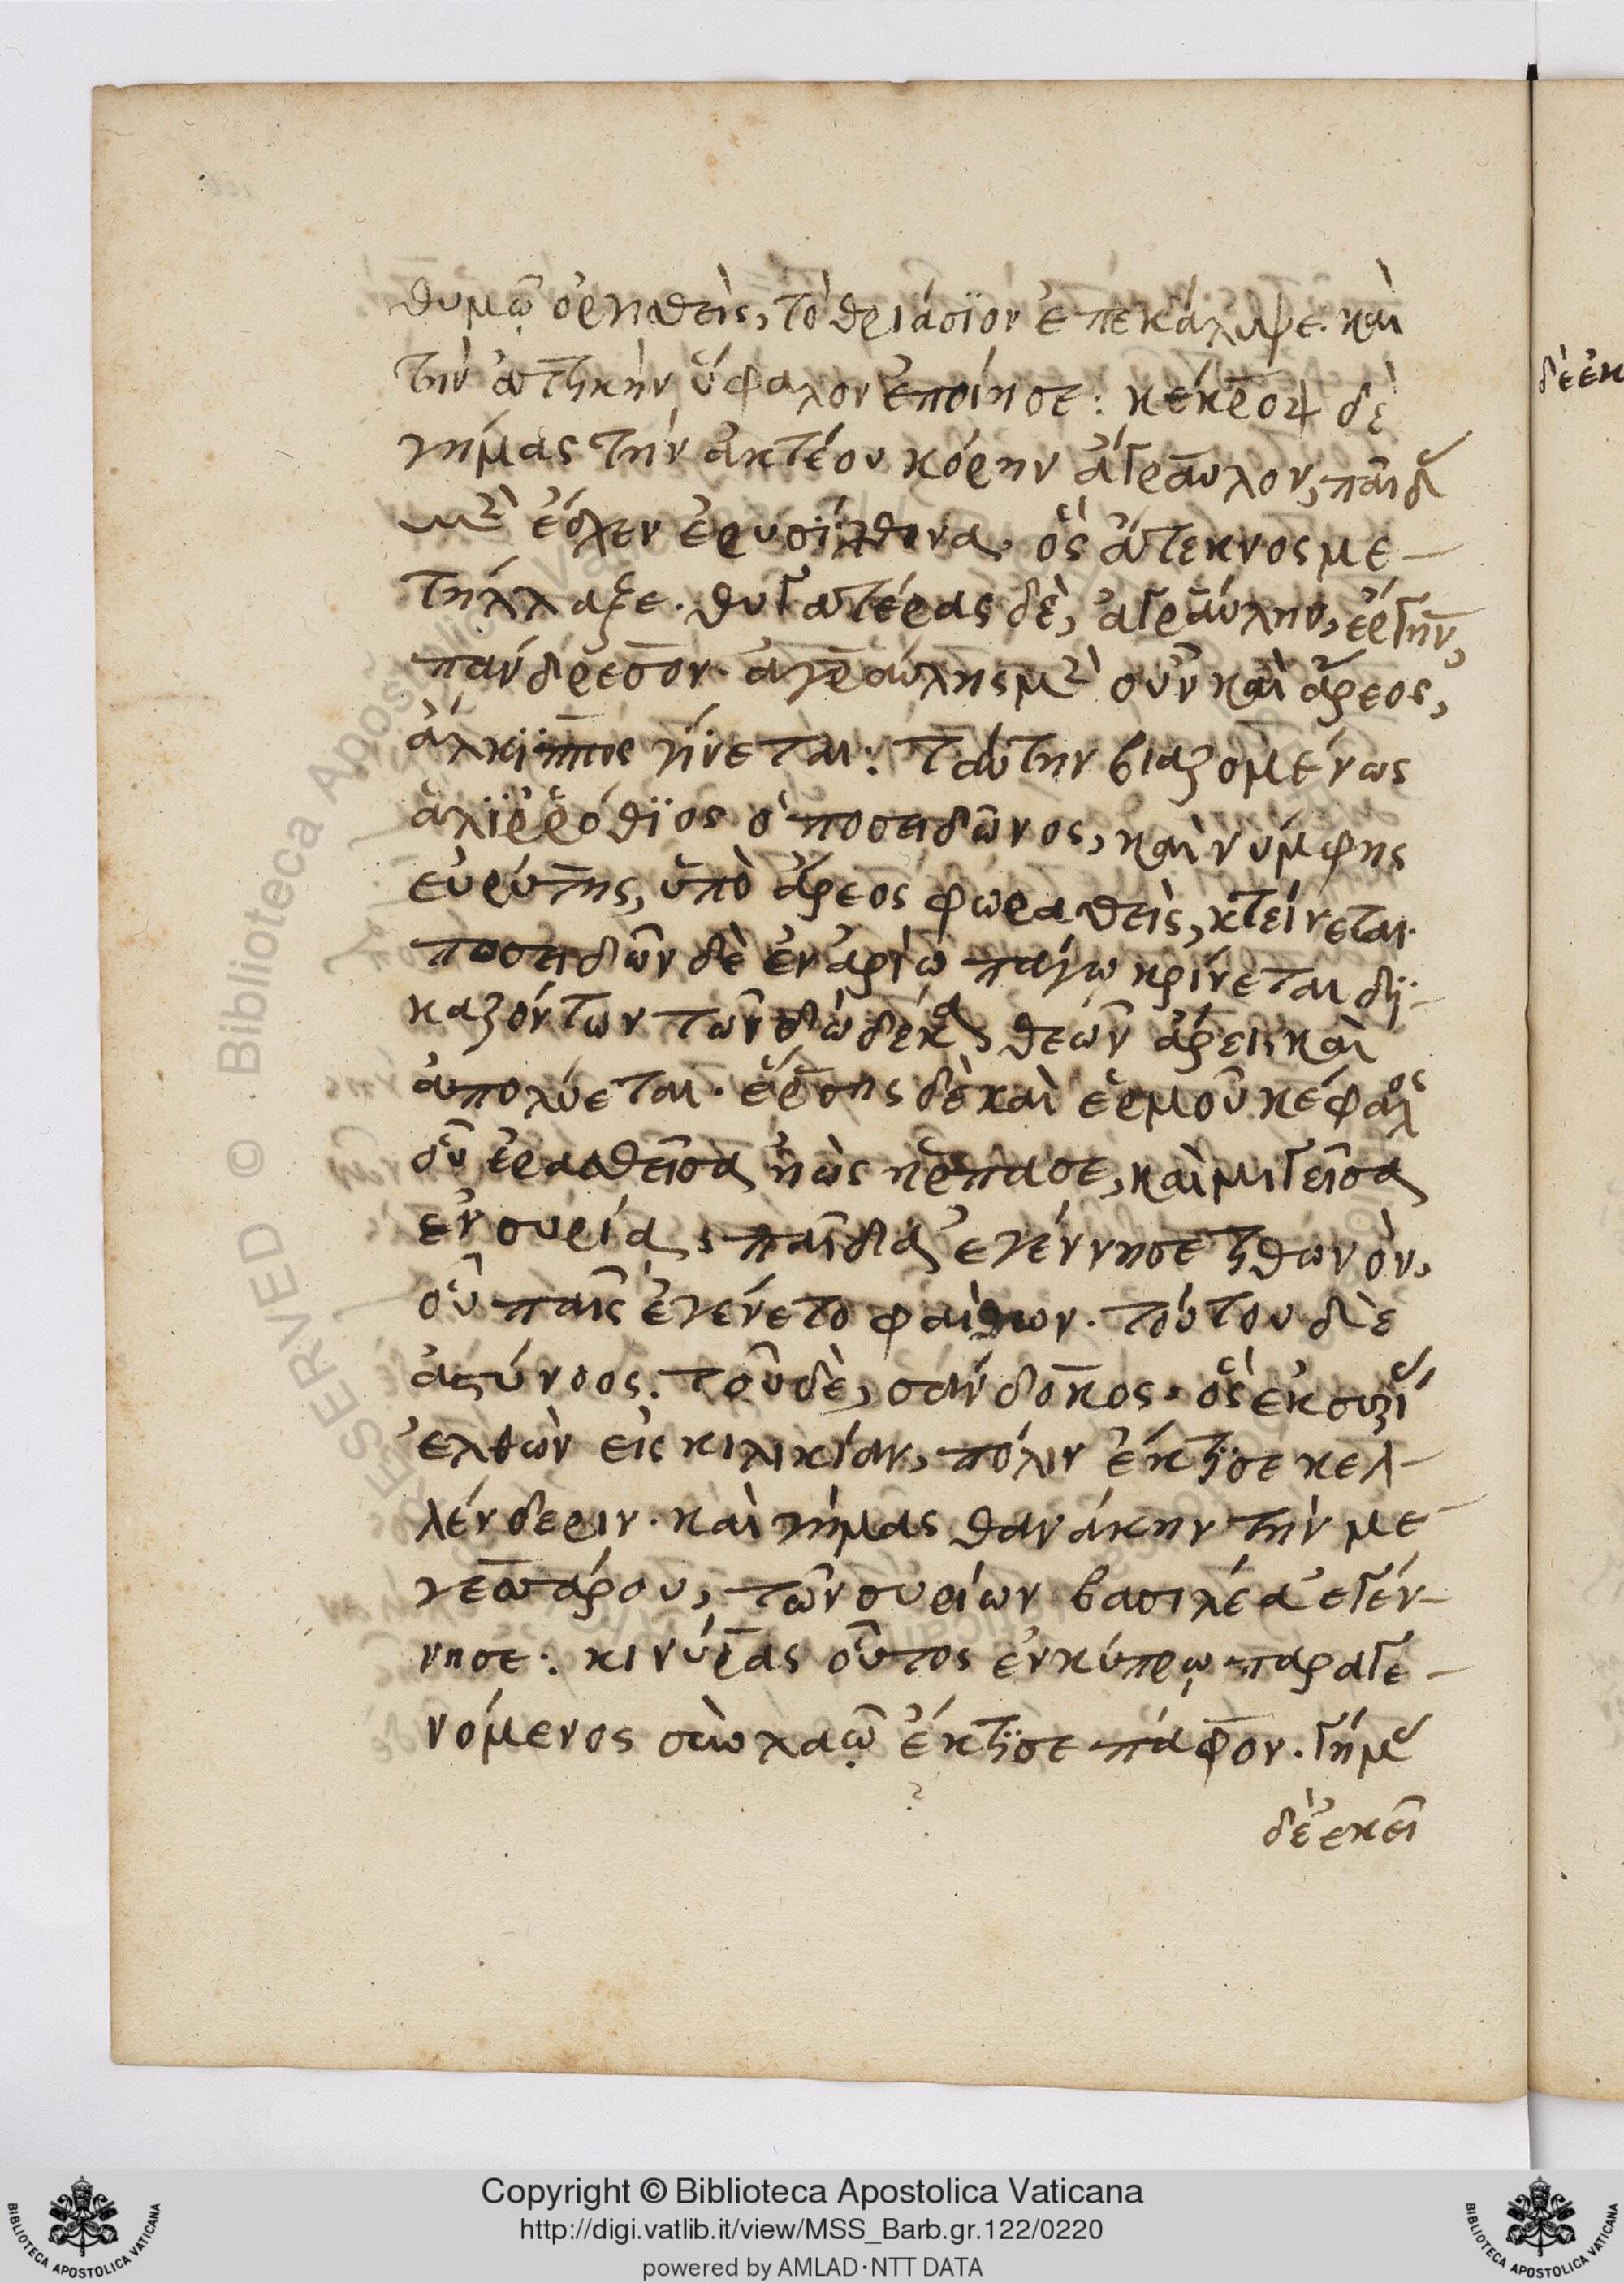 θυμῷ ὀργισθεὶς, τὸ θριάσϊον ἐπεκάλυψε. καὶ
τὴν ἀττικὴν ὕφαλον ἐποίησε: κέκροψ δὲ
γήμας τὴν ἀκτέου κόρην ἄγραυλον, παῖδ
μὲν ἔσχεν ἐρυσίχθονα, ὃς ἄτεκνος με-
τήλλαξε. θυγατέρας δὲ, ἀγραύλην, ἔρσην,
πάνδρεσον. ἀγραύλης μὲν οὖν καὶ ἄρεος,
ἀλκίππος γίνεται: ταύτην βιαζομένως
ἁλιῤῥόθϊος ὁ ποσειδῶνος, καὶ νύμφης
εὐρύτης, ὑπὸ ἄρεος φωραθεὶς, κτείνεται.
ποσειδῶν δὲ ἐν ἀρίω πάγω κρίνεται δϊ-
καζόντων τῶν δώδεκα θεῶν ἄρει, καὶ
ἀπολύεται. ἕρσης δὲ καὶ ἑρμοῦ κέφαλος
οὗ ἐρασθεῖσα ἠὼς ἥρπασε, καὶ μιγεῖσα
ἐν συρίᾳ, παῖδα ἐγέννησε τιθωνὸν,
οὗ παῖς ἐγένετο φαίθων. τούτου δὲ
ἀστύνοος. τοῦ δὲ, σάνδοκος. ὃς ἐκ συρί
ἐλθὼν εἰς κιλικίαν, πόλιν ἔκτϊσε κελ-
λένδεριν. καὶ γήμας θανάκην τὴν με-
γεσσάρου, τῶν συρίων βασιλέα ἐγέν-
νησε: κινύρας οὗτος ἐν κύπρῳ παραγε-
νόμενος σὺν λαῷ ἔκτϊσε πάφον. γήμ
δὲ ἐκεῖ
δὲ ἐκ
Copyright © Biblioteca Apostolica Vaticana
http://digi.vatlib.it/view/MSS_Barb.gr.122/0220
powered by AMLAD·NTT DATA